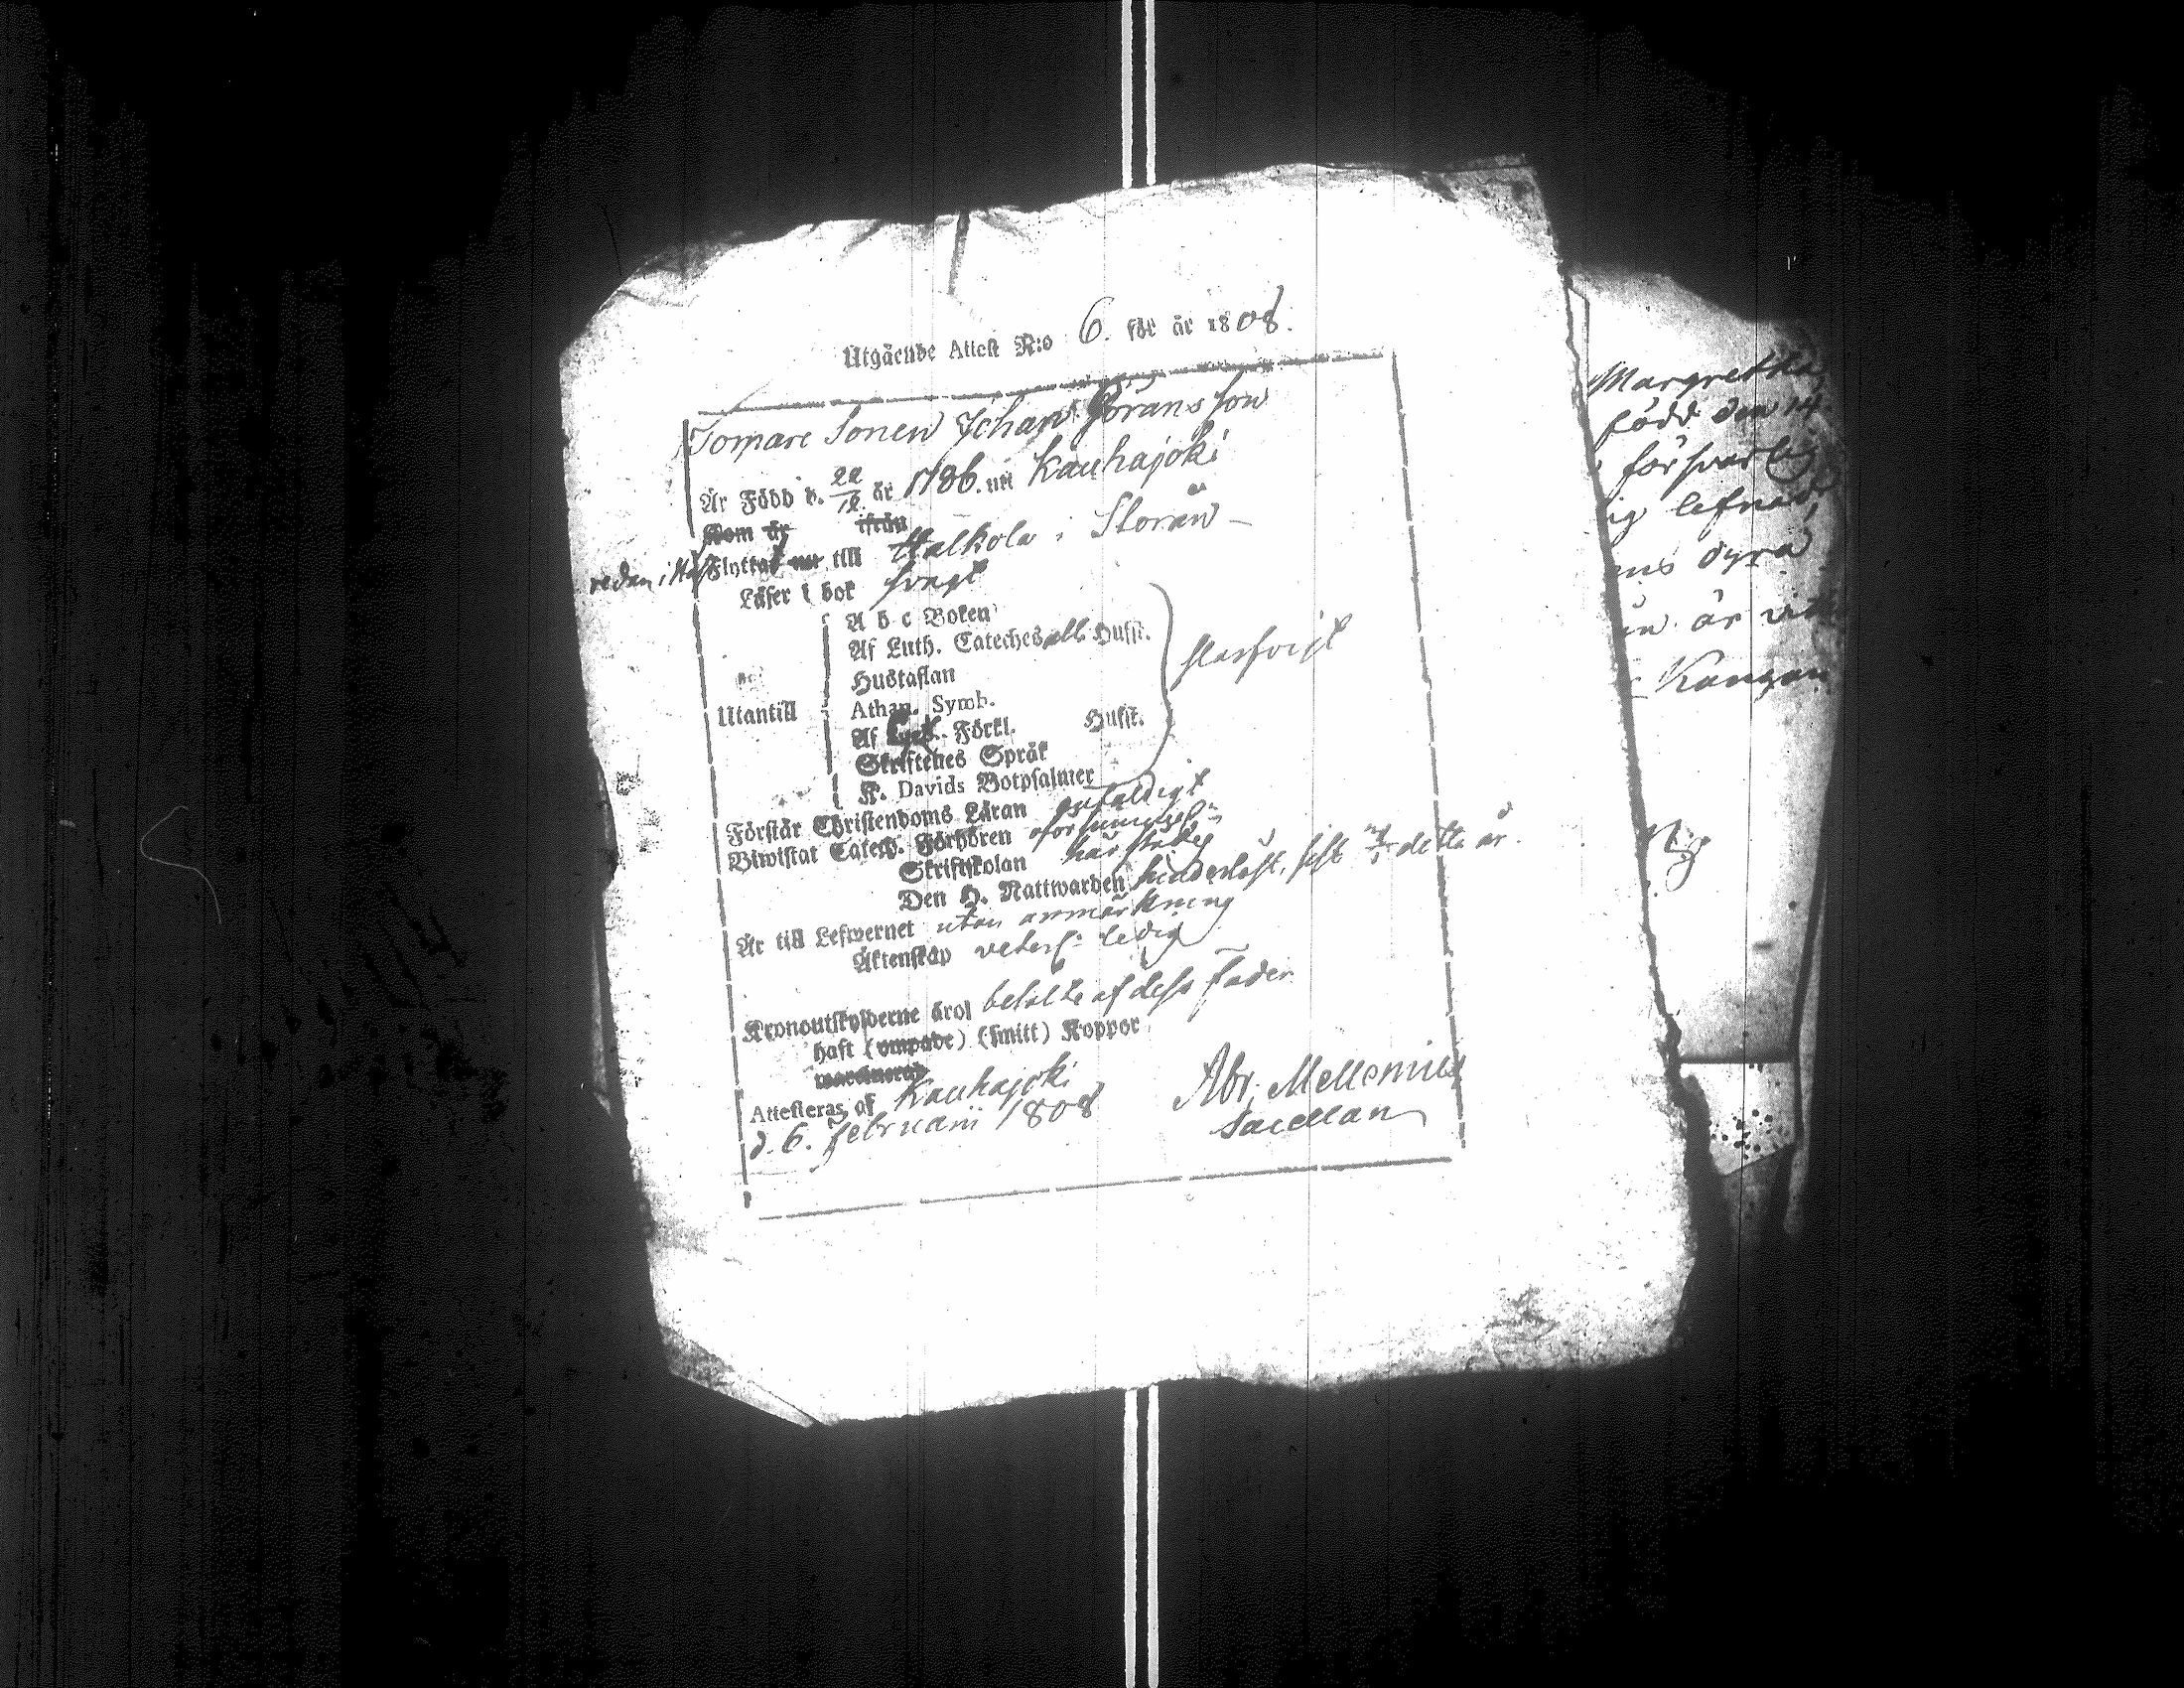 Utgående Attest N:o 6. för år 1808.
Tomare Sonen Johan Göransson
Är Född d. 22/12 år 1786. uti Kauhajoki
Kom år ifrån
redan i Flyttat nu till Halkola i Storån
Läser i bok svagt
A b c Boken
Af Luth. Cateches Hufst.
Hustaflan
Utantill
Athan. Symb.
Af Förkl. Hufst.
Skriftenes Språk
K. Davids Botpsalmer
slarfvigt
Förstår Christendoms Läran enfaldigt
Biwistat Catech. Förhören oförsummel:n
Skriftskolan härstädes
Den H. Nattwarden hinderlöst, sist detta år.
Är till Lefwernet utan anmärkning
Äktenskap veterl: ledig
Kronoutskylderne äro betalte af dess Fader
haft (ympade) (smitt) Koppor
Attesteras af Kauhajoki
d. 6. Februarii 1808
Abr. Mellenius
Sacellan
Margretha
född den 14
försvarlig
ig lefnad
ns dyra
är
Kangan